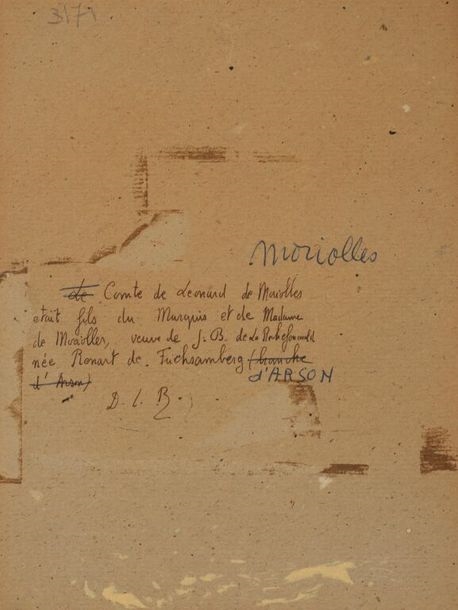 3171
Moriolles
de Comte de Leonard de Moriolles
etait fils du Marquis et de Madame
de Moriolles, veuve de J. B. de La Rochefoucauld
née Ronart de Fuchsamberg (branche
d'Arson)
d'ARSON
D. L. R.